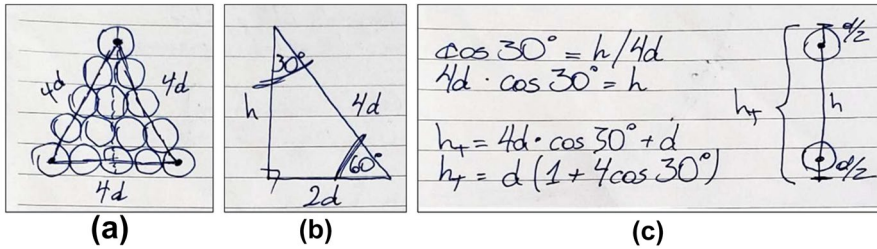 4d
4d
4d
(a)
30°
h
4d
60°
2d
(b)
cos 30° = h/4d
4d · cos 30° = h
h_T = 4d · cos 30° + d
h_T = d (1 + 4cos 30°)
d/2
h_T
h
d/2
(c)